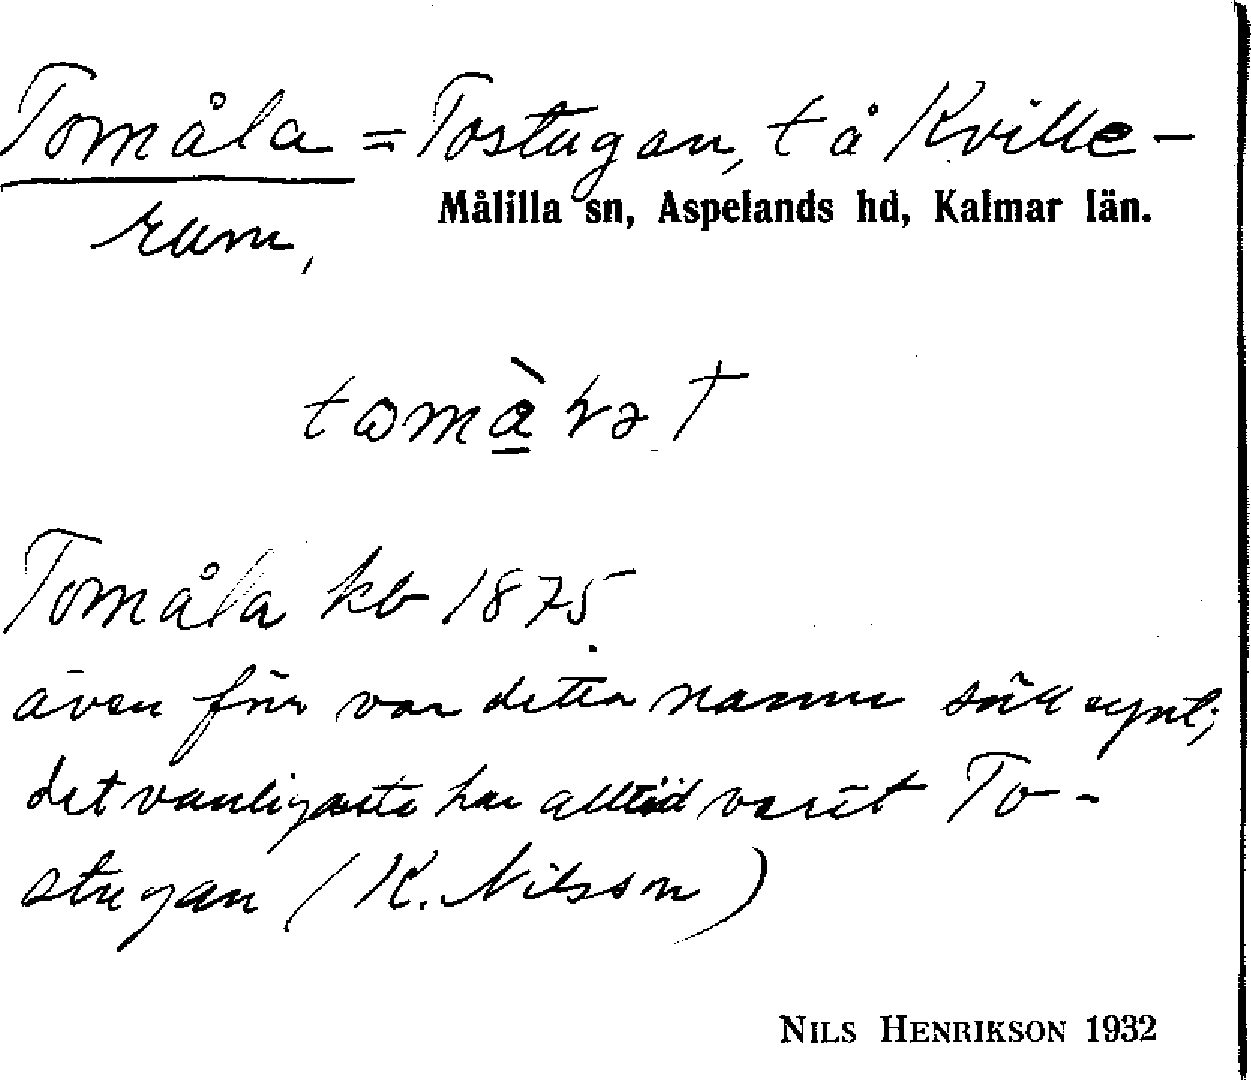 Tomåla = Tostugan, t å Kville-
Målilla sn, Aspelands hd, Kalmar län.
ram,
Tomåla kb 1875.
även förr var detta namn sällsynt;
det vanligaste har alltid varit To-
stugan (K. Nilsson)
NILS HENRIKSON 1932